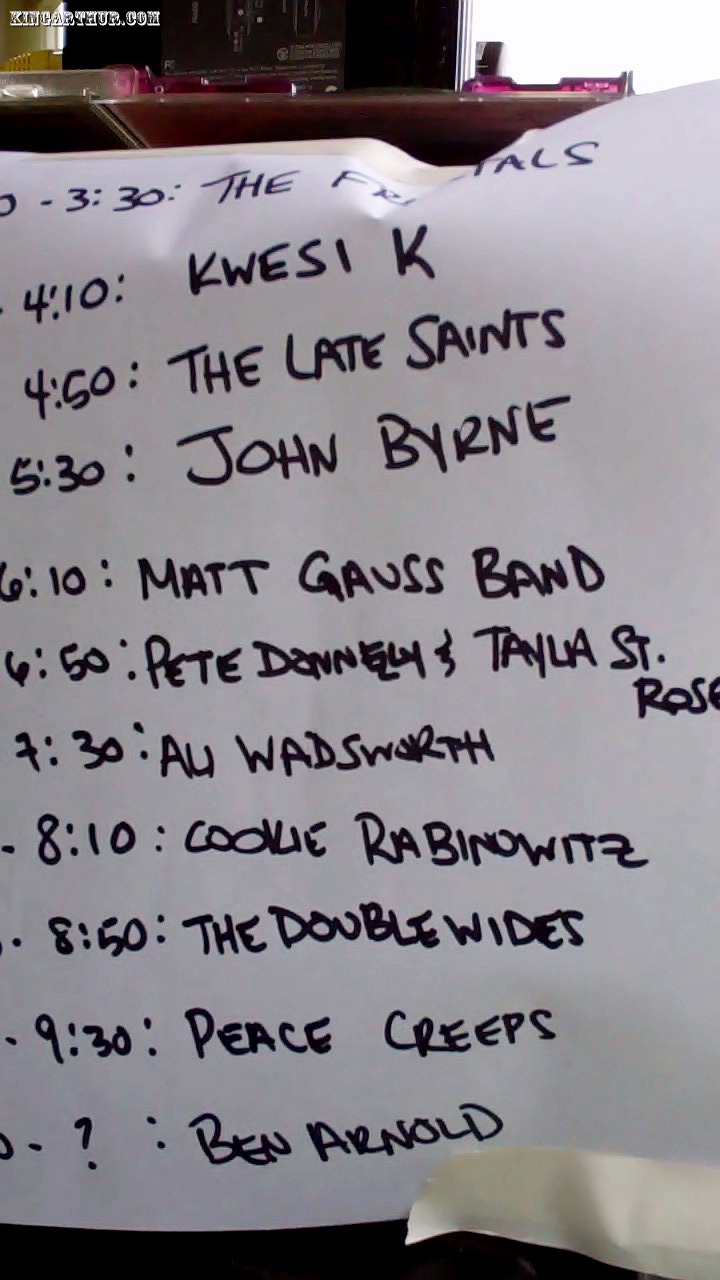 KINGARTHUR.COM
0 - 3:30: THE
- 4:10: KWESI K
4:50: THE LATE SAINTS
5:30: JOHN BYRNE
6:10: MATT GAUSS BAND
6:50: PETE DONNELY & TAYLA ST.
ROSE
7:30: ALI WADSWORTH
- 8:10: COOKIE RABINOWITZ
- 8:50: THE DOUBLEWIDES
- 9:30: PEACE CREEPS
0 - ? : BEN ARNOLD